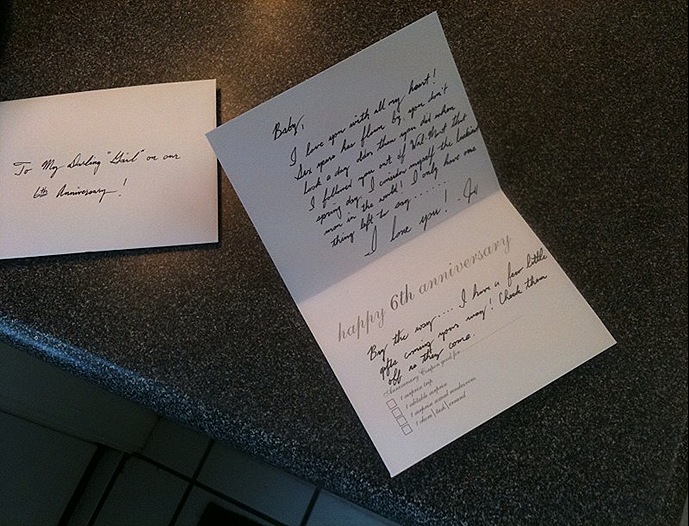 To My Darling "Girl" on our
6th Anniversary!
Baby,
I love you with all my heart!
Six years has flown by, you don't
look a day older than you did when
I followed you out of Wal-Mart that
spring day. I consider myself the luckiest
man in the world! I only have one
thing left to say.......
I love you! Jo
happy 6th anniversary
By the way.... I have a few little
gifts coming your way! Check them
off as they come.
Anniversary Coupon good for:
1 surprise trip
1 editable surprise
1 surprise
1 chore \ task \ errand